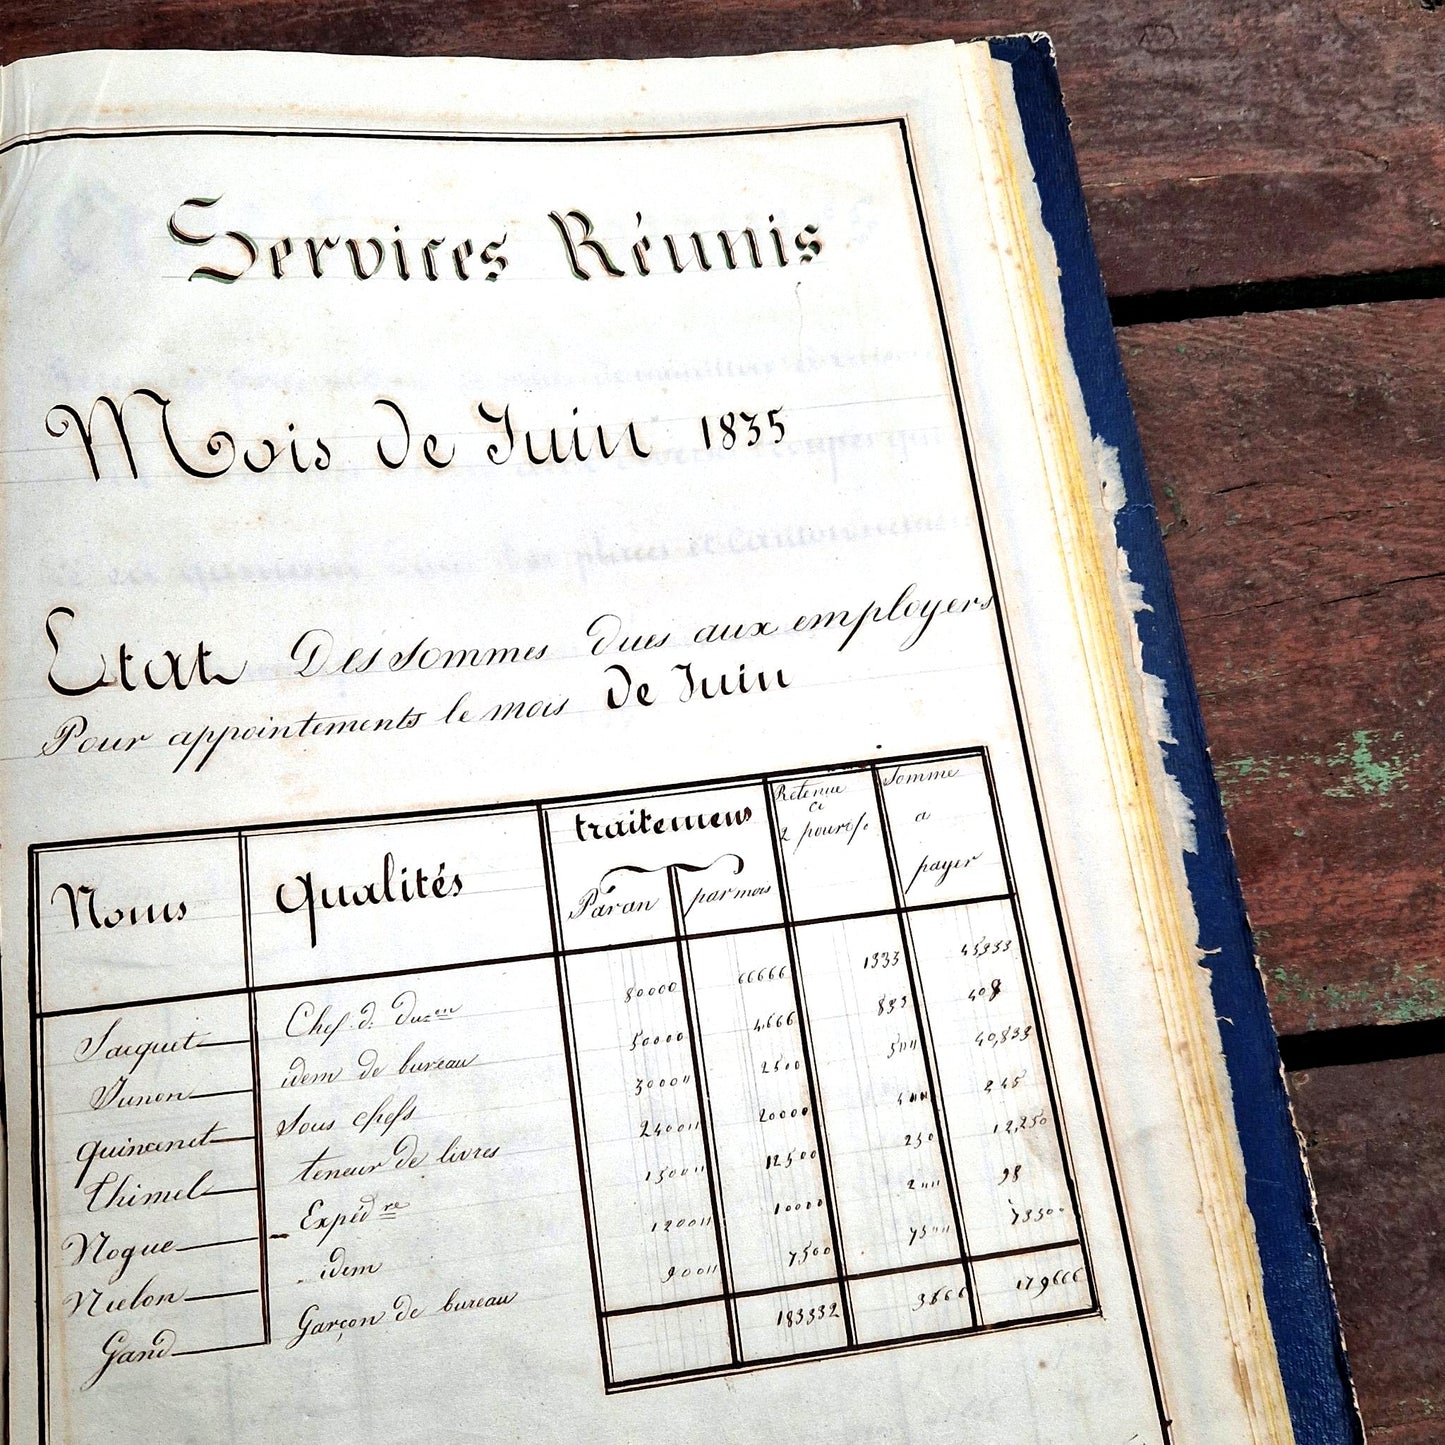 Services Réunis
Mois De Juin 1835
Etat Des Sommes Dues aux employers
Pour appointements le mois De Juin
Noms Qualités traitemens Retenue Somme
Par an par mois ce a
2 pour % payer
Chef. d: Dv.on 80000 66666 1333
idem de bureau 50000 4,666 833 408
Quinanet Sous chefs 30000 2500 40,833
Thimel teneur de livres 24000 20000 245
Nogue Expéd.re 15000 12500 250 12,250
Nielon idem 12000 10000 98
Gand Garçon de bureau 9000 7500 73500
183332 3666 179666